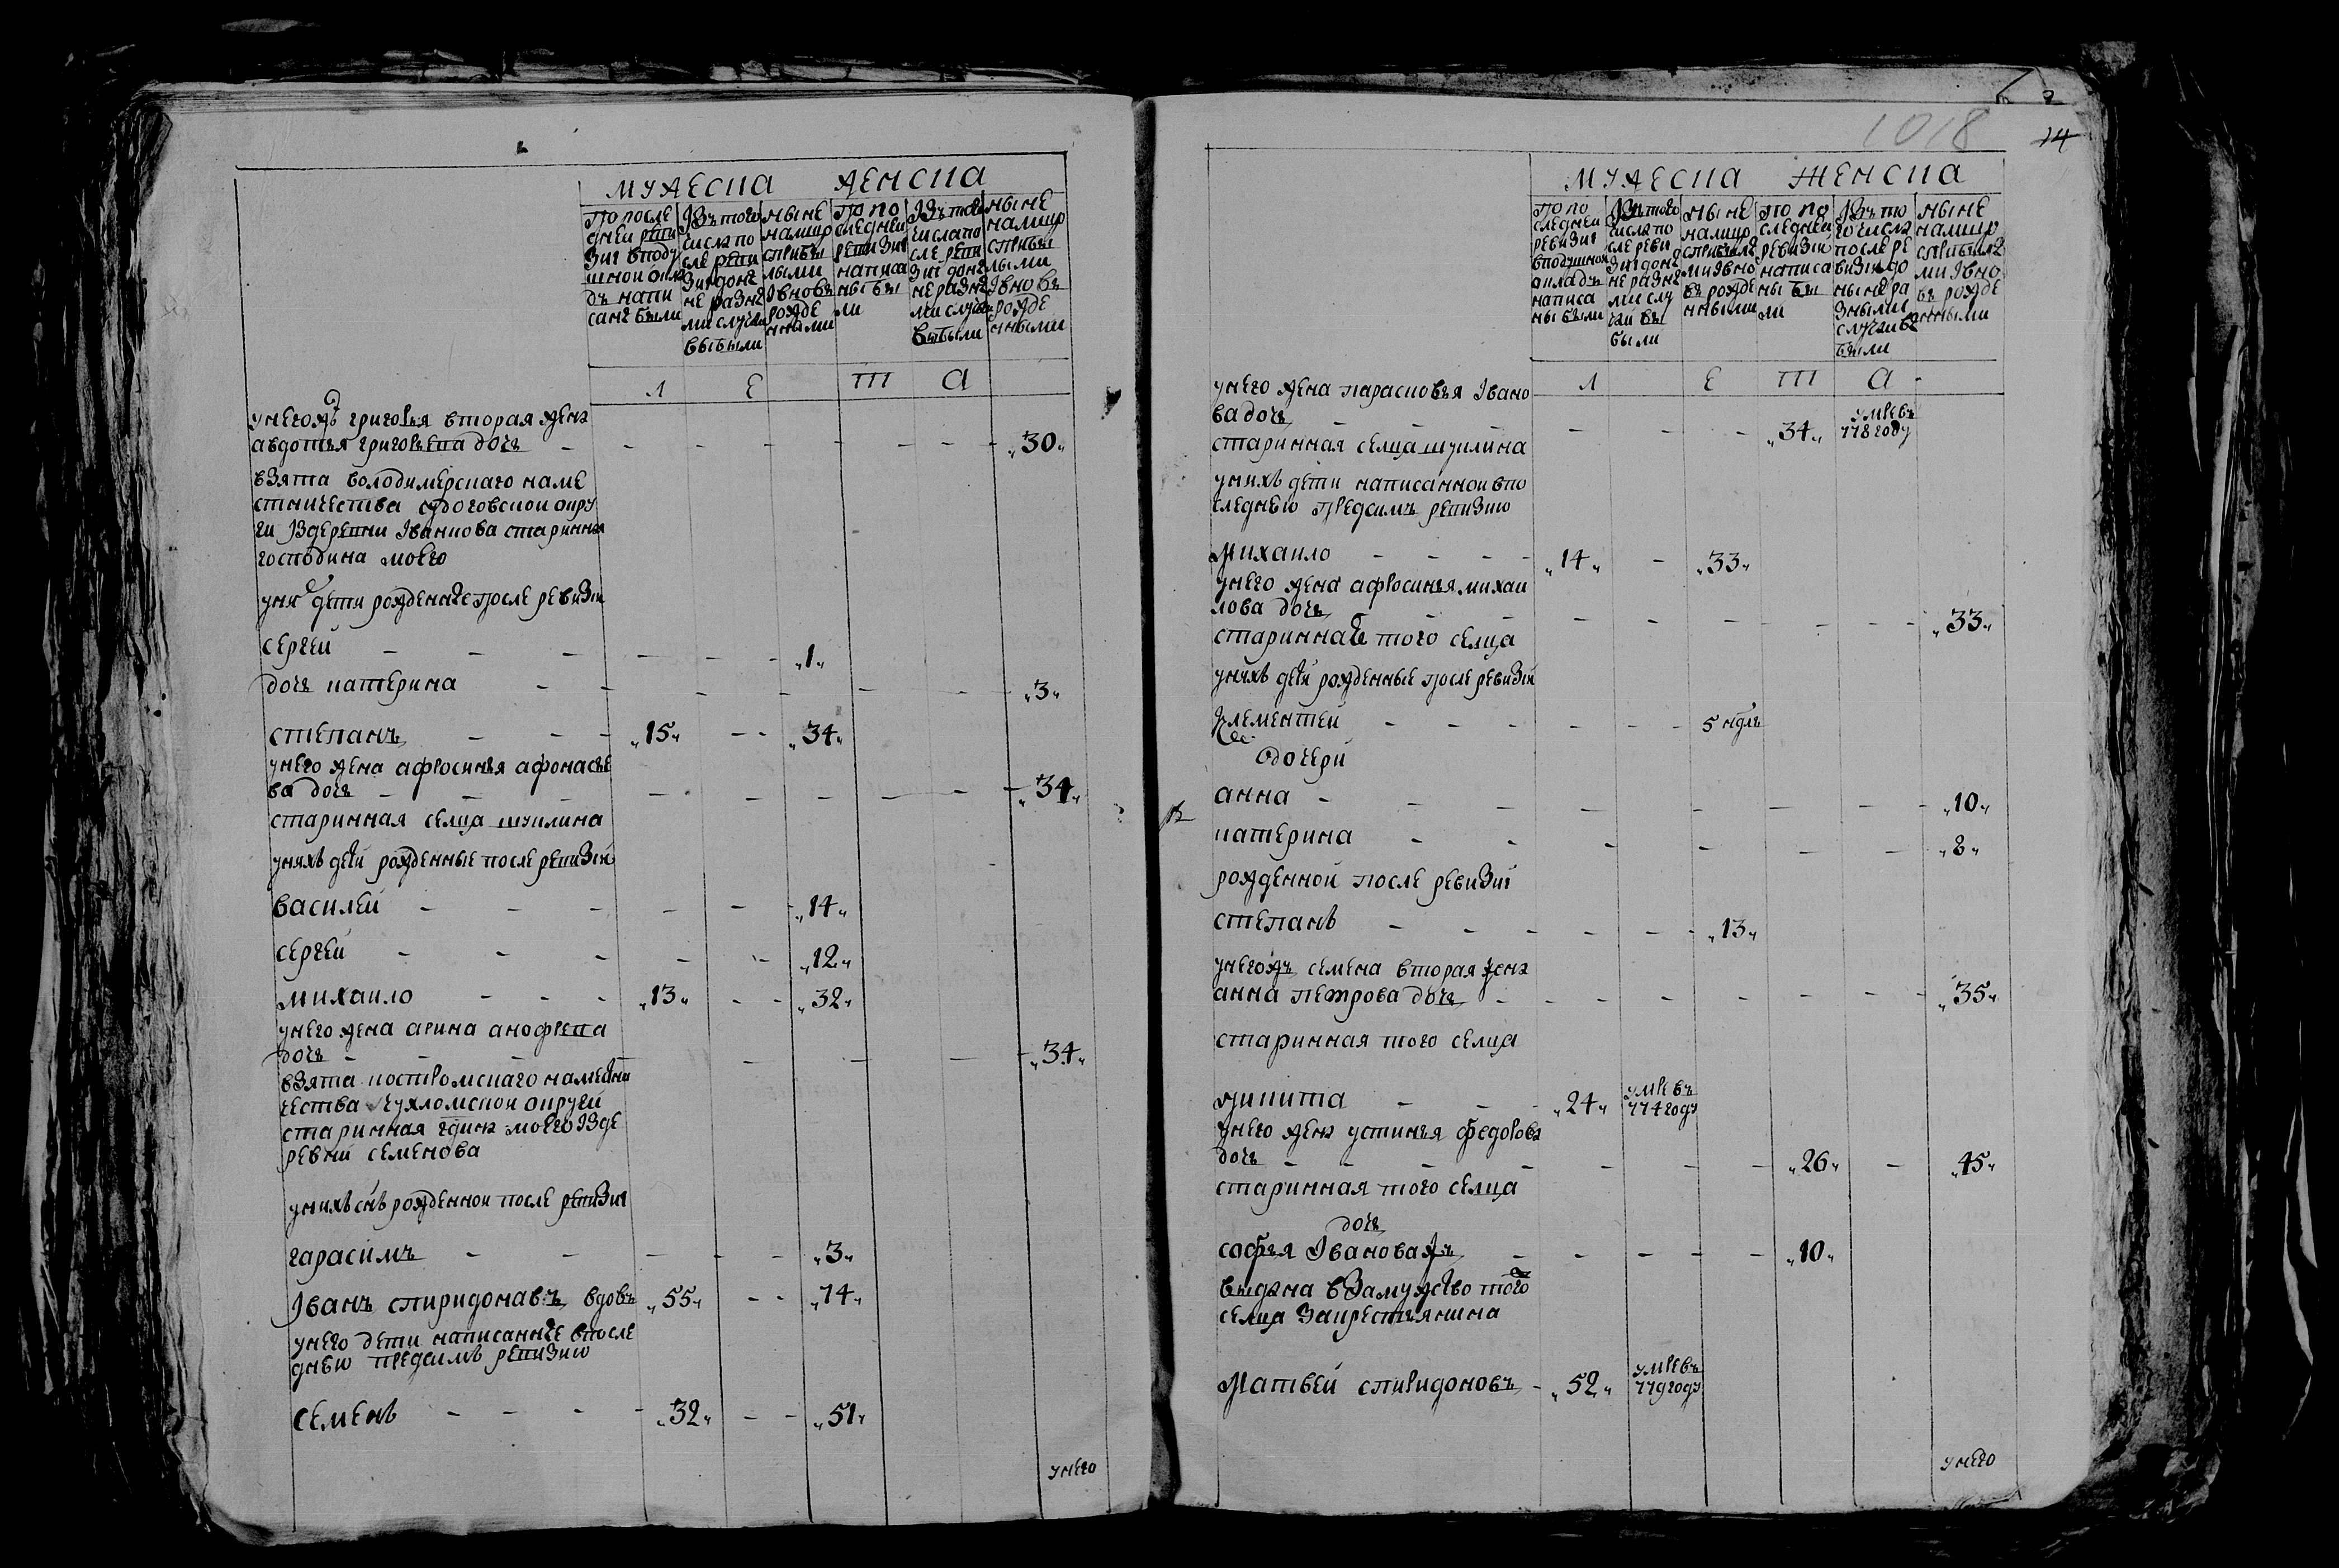 мужеска женска
по после
дней реви
зиi вподу
шной окла
дъ напи
сане были
Iзъ того
числа по
сле реви
зиi доне
не разне
ми случаи
выбыли
ныне
налицо
сприбы
лыми
Iвновь
рожде
нными
по по
следней
ревизиi
написа
ны бы
ли
Iзъ того
числа по
сле реви
зиi доне
не разне
ми случаи
выбыли
ныне
налицо
сприбы
лыми
Iвновь
рожде
нными
л е т а
унегожъ григорья вторая жена
авдотья григорьева дочь - „30„
взята володимерскаго наме
стничества судоговской окру
ги Iздеревни Iванкова старинная
господина моего
уних дети рожденные после ревизiи
сергей - „1„
дочь катерина - „3„
степанъ - „15„ - „34„
унего жена афросинья афонасье
ва дочь - „34„
старинная сельца шукалина
унихъ дети рожденные после ревизiи
василей - „14„
сергей - „12„
михаило - „13„ - „32„
унего жена арина анофрева
дочь - „34„
взята костромскаго наместни
чества чухломской округи
старинная гдина моего Iзде
ревни семенова
унихъ снъ рожденной после ревизиi
гарасимъ - „3„
Iванъ спиридонавъ вдовъ „55„ - „74„
унего дети написанные впосле
днею предсимъ ревизию
семенъ - „32„ - „51„
унего
1018
14
мужеска женска
по по
следней
ревизиi
вподушной
окладъ
написа
ны были
Iзъ того
числа по
сле реви
зиi доне
не разне
ми слу
чаи вы
были
ныне
налицо
сприбыле
ми Iвно
въ рожде
нными
по по
следней
ревизиi
написа
ны бы
ли
Iзъ то
го числа
после ре
визiи до
ныне ра
зными
случаи вы
были
ныне
налицо
сприбыле
ми Iвно
въ рожде
нными
л е т а
унего жена парасковья Iвано
ва дочь - „34„ умре въ 778 году
старинная сельца шукалина
унихъ дети написанной впо
следнею предсимъ ревизию
Михаило - „14„ - „33„
унего жена афросинья михаи
лова дочь - „33„
старинная того сельца
унихъ дети рожденные после ревизiи
Клементей - 5 ндль
дочери
анна - „10„
катерина - „8„
рожденной после ревизиi
степанъ - „13„
унегожъ семена вторая жена
анна петрова дочь - „35„
старинная того сельца
Никита - „24„ умре въ 774 году
унего жена устинья федорова
дочь - „26„ - „45„
старинная того сельца
дочь
софья Ивановажъ - „10„
выдана взамужство того
сельца закрестьянина
Матвей спиридоновъ - „52„ умре въ 779 году
унего